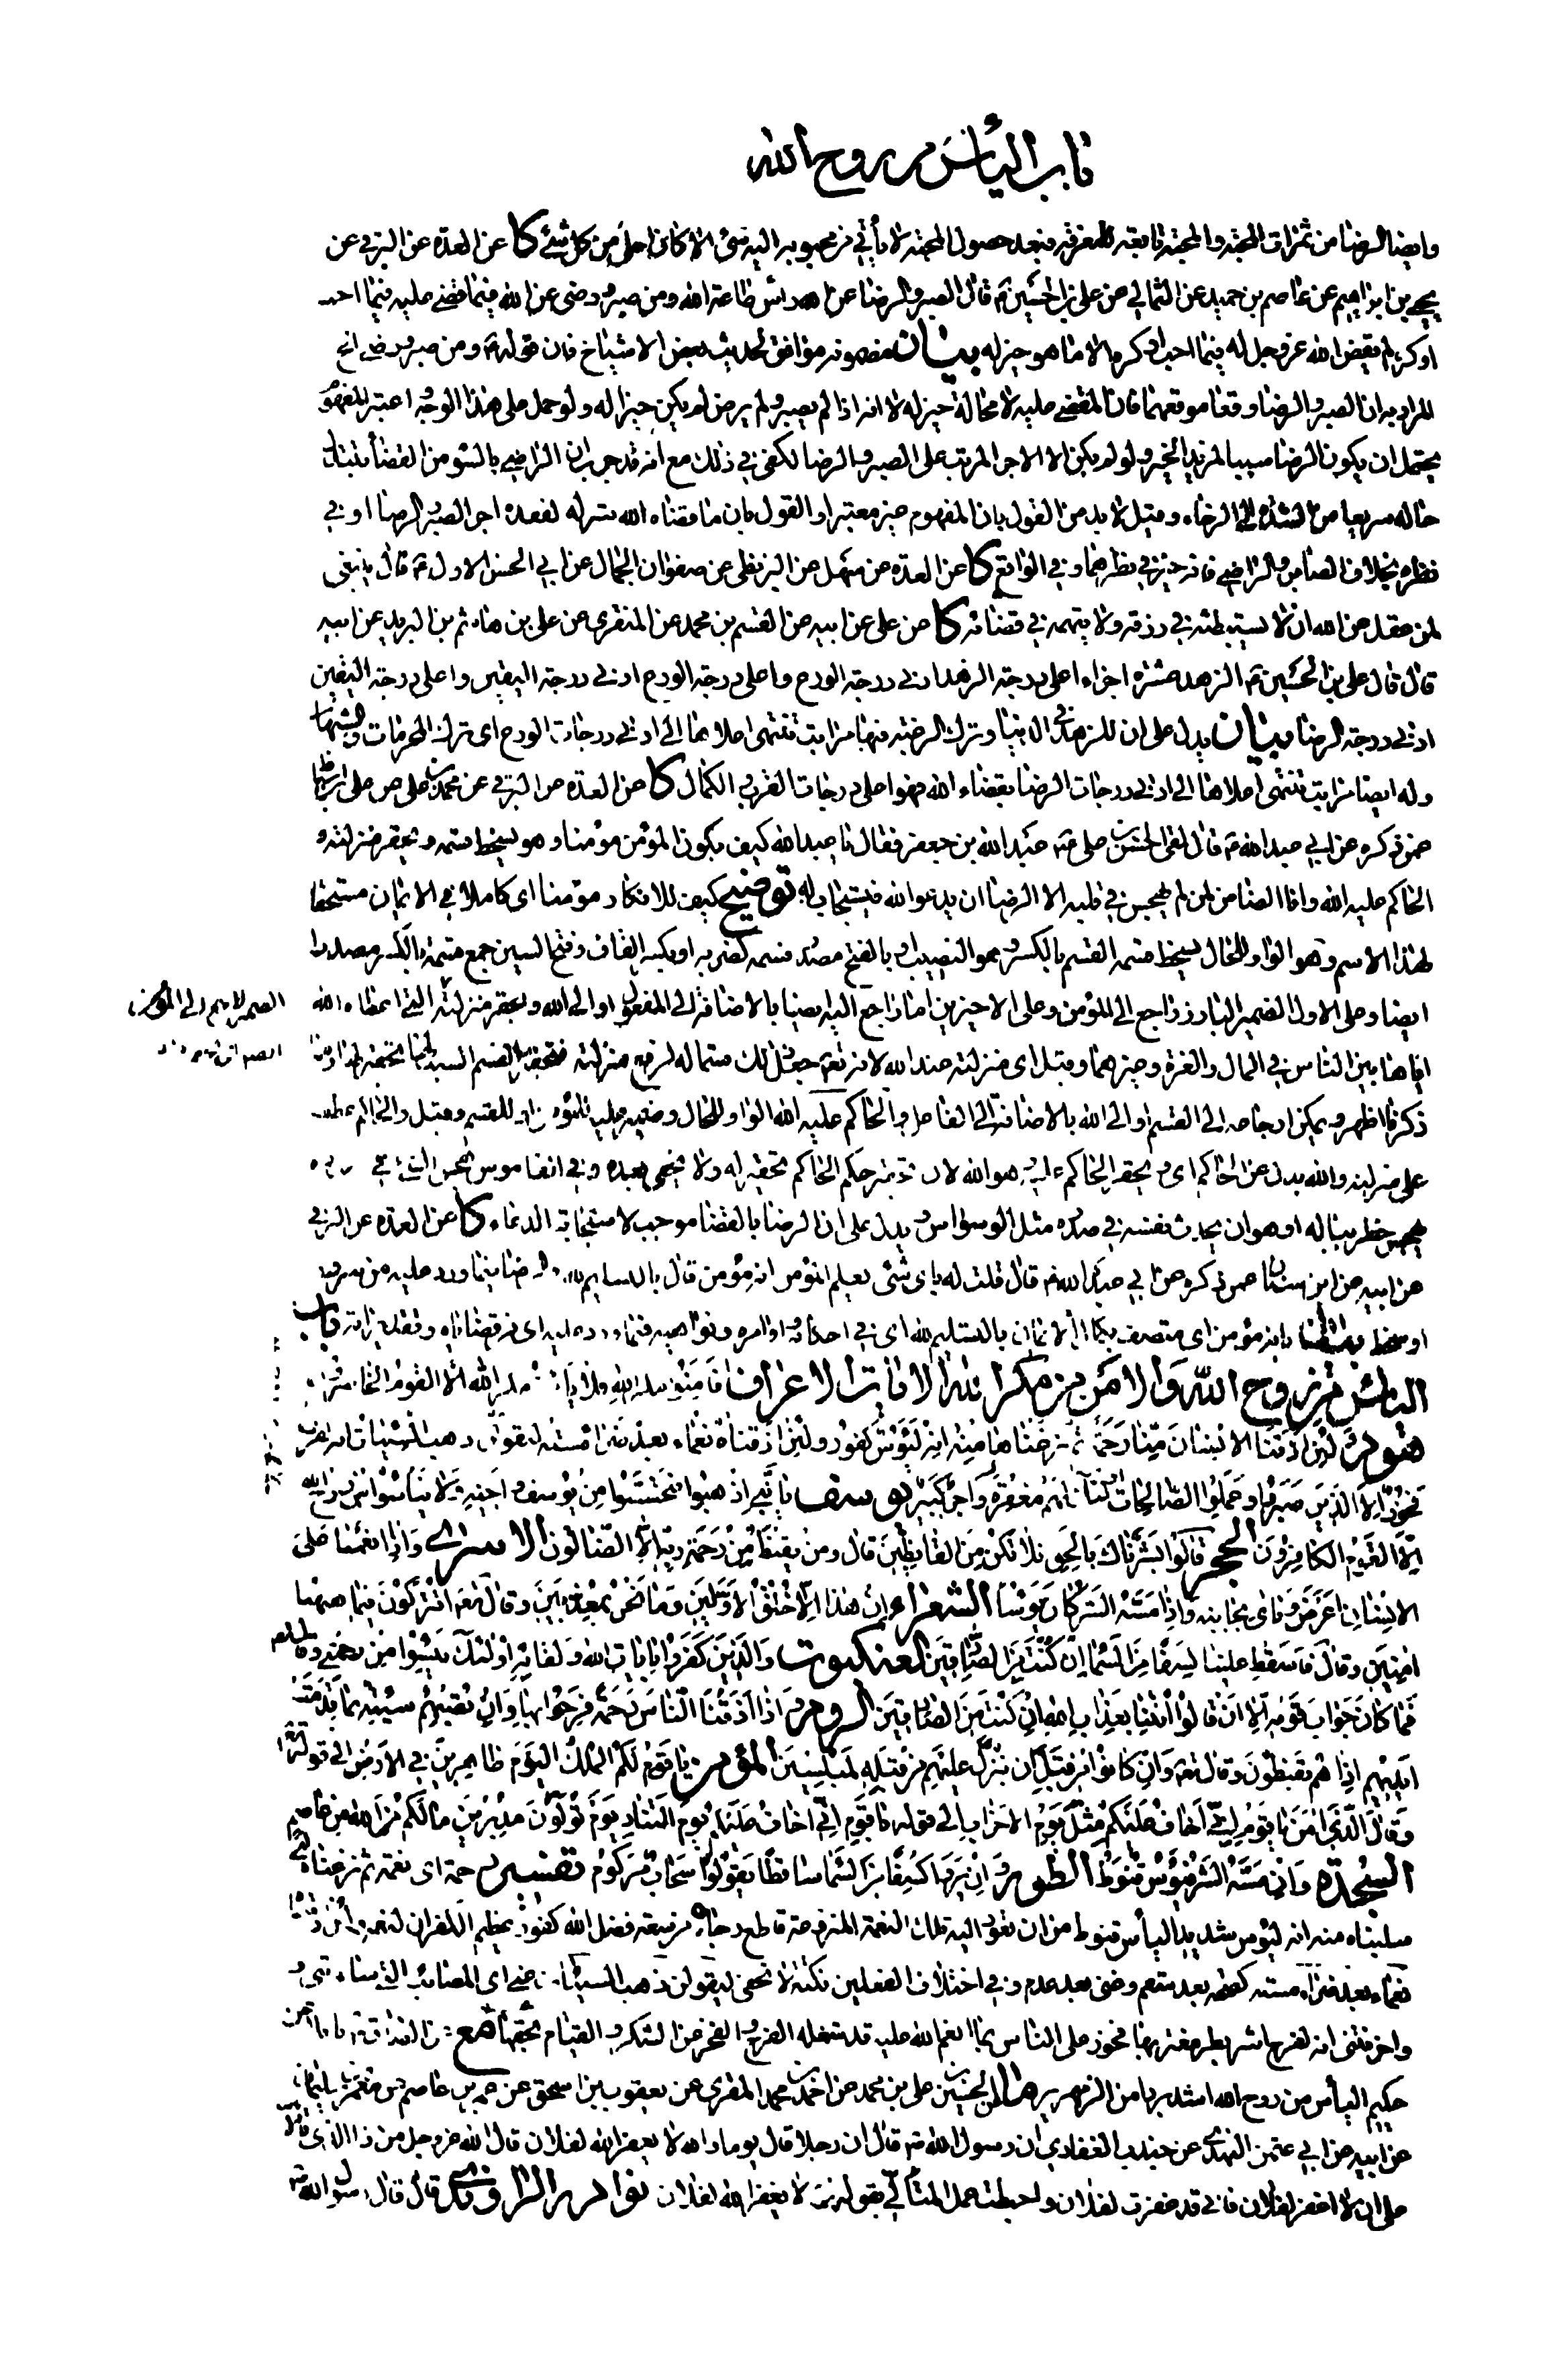 باب اليأس من روح الله
وايضا الرضا من ثمرات المحبة والمحبة تابعة للمعرفة فبعد حصول المحبة لا يأتي من محبوبه اليه شئ الا كان احلى من كل شئ كا عن العدة عن البرقي عن
يحيى بن ابراهيم عن عاصم بن حميد عن الثمالي عن علي بن الحسين ع قال الصبر والرضا عن الله رأس طاعة الله ومن صبر ورضي عن الله فيما قضى عليه فيما احب
او كره لم يقض الله عز وجل له فيما احب او كره الا ما هو خير له بيان مضمونه موافق لحديث بعض الاشياخ فان قوله ع ومن صبر ورضي الخ
المراد به ان الصبر والرضا وقعا موقعهما فان المقضي عليه لا محالة خير له لا انه اذا لم يصبر ولم يرض لم يكن خيرا له ولو حمل على هذا الوجه واعتبر المفهوم
يحتمل ان يكون الرضا سببا لمزيد الخير ولو لم يكن الا الاجر المرتب على الصبر والرضا لكفى في ذلك مع انه قد جرب ان الراضي بالسوء من القضاء تتبدل
حاله سريعا من الشدة الى الرخاء وقيل لا بد من القول بان المفهوم غير معتبر او القول بان ما قضاه الله شر له لفقده اجر الصبر والرضا او في
نظره بخلاف الصابر والراضي فانه خير في نظرهما وفي الواقع كا عن العدة عن سهل عن البزنطي عن صفوان الجمال عن ابي الحسن الاول ع قال ينبغي
لمن عقل عن الله ان لا يستبطئه في رزقه ولا يتهمه في قضائه كا عن علي عن ابيه عن القسم بن محمد عن المنقري عن علي بن هاشم بن البريد عن ابيه
قال قال علي بن الحسين ع الزهد عشرة اجزاء اعلى درجة الزهد ادنى درجة الورع واعلى درجة الورع ادنى درجة اليقين واعلى درجة اليقين
ادنى درجة الرضا بيان يدل على ان للزهد في الدنيا وترك الرغبة فيها مراتب تنتهى اعلاها الى ادنى درجات الورع اى ترك المحرمات والشبهات
وله ايضا مراتب تنتهى اعلاها الى ادنى درجات الرضا بقضاء الله فهو اعلى درجات القرب والكمال كا عن العدة عن البرقي عن محمد بن علي عن علي بن اسباط
عمن ذكره عن ابي عبد الله ع قال لقى الحسن بن علي ع عبد الله بن جعفر فقال يا عبد الله كيف يكون المؤمن مؤمنا وهو يسخط قسمه ويحقر منزلته و
الحاكم عليه الله وانا الضامن لمن لم يهجس في قلبه الا الرضا ان يدعو الله فيستجاب له توضيح كيف للانكار مؤمنا اى كاملا في الايمان مستحقا
لهذا الاسم وهو الواو للحال يسخط قسمه القسم بالكسر وهو النصيب او بالفتح مصدر قسمه كضربه او بكسر القاف وفتح السين جمع قسمة بالكسر مصدرا
ايضا وعلى الاول الضمير البارز راجع الى المؤمن وعلى الاخيرين اما راجع اليه ايضا بالاضافة الى المفعول او الى الله ويحقر منزلته التي اعطاه الله
اياها بين الناس في المال والعزة وغيرهما وقيل اى منزلته عند الله لانه تع جعل ذلك قسما له لرفع منزلته فتحقير القسم السبب لها تحقير لها وما
ذكرنا اظهر ويمكن ارجاعه الى القسم او الى الله بالاضافة الى الفاعل والحاكم عليه الله الواو للحال وضمير عليه للمؤمن او للقسم وقيل والحاكم عطف
على منزلته والله بدل عن الحاكم اى ويحقر الحاكم عليه وهو الله لان تحقير حكم الحاكم تحقير له ولا يخفى بعده وفي القاموس هجس الشئ في صدره
يهجس خطر بباله او هو ان يحدث نفسه في صدره مثل الوسواس ويدل على ان الرضا بالقضا موجب لاستجابة الدعاء كا عن العدة عن البرقي
عن ابيه عن ابن سنان عمن ذكره عن ابي عبد الله ع قال قلت له باى شئ يعلم المؤمن انه مؤمن قال بالتسليم لله والرضا فيما ورد عليه من سرور
او سخط بيان بانه مؤمن اى متصف بكمال الايمان بالتسليم لله اى في احكامه واوامره ونواهيه فيما ورد عليه اى من قضاياه وتقديراته باب
اليأس من روح الله والامن من مكر الله الآيات الاعراف أفأمنوا مكر الله فلا يأمن مكر الله الا القوم الخاسرون
هود ولئن اذقنا الانسان منا رحمة ثم نزعناها منه انه ليؤس كفور ولئن اذقناه نعماء بعد ضراء مسته ليقولن ذهب السيئات عني انه لفرح
فخور الا الذين صبروا وعملوا الصالحات اولئك لهم مغفرة واجر كبير يوسف يا بني اذهبوا فتحسسوا من يوسف واخيه ولا تيأسوا من روح الله
الا القوم الكافرون الحجر قالوا بشرناك بالحق فلا تكن من القانطين قال ومن يقنط من رحمة ربه الا الضالون الاسرى واذا انعمنا على
الانسان اعرض ونأى بجانبه واذا مسه الشر كان يؤسا الشعراء ان هذا الا خلق الاولين وما نحن بمعذبين وقال تع اتتركون فيما ههنا
امنين وقال فاسقط علينا كسفا من السماء ان كنت من الصادقين العنكبوت والذين كفروا بايات الله ولقائه اولئك يئسوا من رحمتي وقال تع
فما كان جواب قومه الا ان قالوا ائتنا بعذاب الله ان كنت من الصادقين الروم واذا اذقنا الناس رحمة فرحوا بها وان تصبهم سيئة بما قدمت
ايديهم اذا هم يقنطون وقال تع وان كانوا من قبل ان ينزل عليهم من قبله لمبلسين المؤمن يا قوم لكم الملك اليوم ظاهرين في الارض الى قوله تع
وقال الذي امن يا قوم اني اخاف عليكم مثل يوم الاحزاب الى قوله يا قوم اني اخاف عليكم يوم التناد يوم تولون مدبرين ما لكم من الله من عاصم
السجدة وان مسه الشر فيؤس قنوط الطور وان يروا كسفا من السماء ساقطا يقولوا سحاب مركوم تفسير رحمة اى نعمة ثم نزعناها اى
سلبناه منه انه ليؤس شديد اليأس قنوط من ان تعود اليه تلك النعمة المنزوعة قاطع رجاءه من سعة فضل الله كفور عظيم الكفران لنعمه ولئن اذقناه
نعماء بعد ضراء مسته كصحة بعد سقم وغنى بعد عدم وفي اختلاف الفعلين نكتة لا تخفى ليقولن ذهب السيئات عني اى المصائب التي ساءتني و
واحزنتني انه لفرح اشر بطر مغتر بها فخور على الناس بما انعم الله عليه قد شغله الفرح والفخر عن الشكر والقيام بحقها مع عن الصادق ع ناقلا عن
حكيم اليأس من روح الله اشد بردا من الزمهرير ما الحسين بن علي بن محمد عن احمد بن محمد المقري عن يعقوب بن اسحق عن عمرو بن عاصم عن معمر بن سليمان
عن ابيه عن ابي عثمن النهدي عن جندب الغفاري ان رسول الله ص قال ان رجلا قال يوما والله لا يغفر الله لفلان قال الله عز وجل من ذا الذي تألى
على ان لا اغفر لفلان فاني قد غفرت لفلان واحبطت عمل المتألي بقوله لا يغفر الله لفلان نوادر الراوندي قال قال رسول الله ص